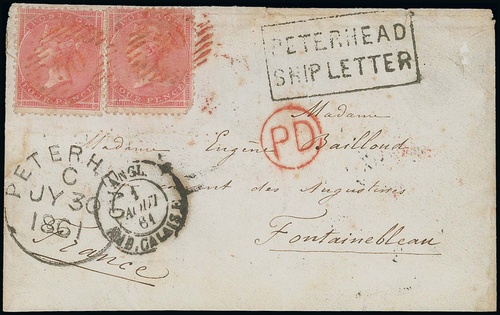 FOUR PENCE
FOUR PENCE
PETERHEAD
SHIP LETTER
PD
Madame
Madame Eugène Bailloud
des Augustines
Fontainebleau
France
PETERH
C
JY 30
1861
ANGL.
1
AOUT
61
AMB. CALAIS